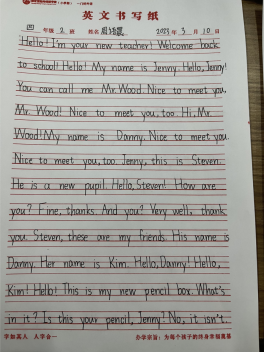 英文书写纸
四 年级 2 班 姓名 2023 年 3 月 10 日
Hello! I'm your new teacher! Welcome back
to school! Hello! My name is Jenny. Hello, Jenny!
You can call me Mr. Wood. Nice to meet you,
Mr. Wood! Nice to meet you, too. Hi, Mr.
Wood! My name is Danny. Nice to meet you.
Nice to meet you, too. Jenny, this is Steven.
He is a new pupil. Hello, Steven! How are
you? Fine, thanks. And you? Very well, thank
you. Steven, these are my friends. His name is
Danny. Her name is Kim. Hello, Danny! Hello,
Kim! Hello! This is my new pencil box. What's
in it? Is this your pencil, Jenny? No, it isn't.
学如高人 人字合一 办学宗旨：为每个孩子的终身幸福奠基